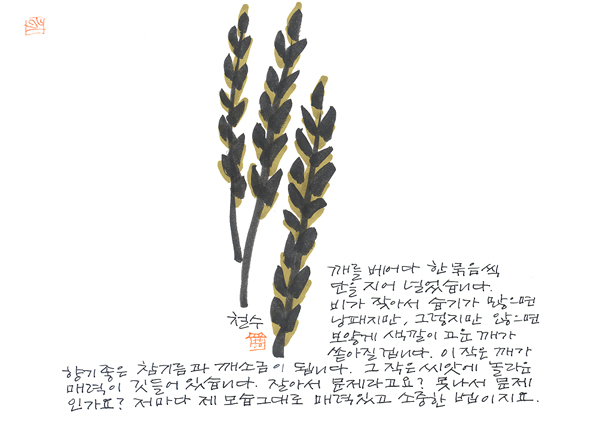 깨를 베어다 한 묶음씩
단을 지어 널었습니다.
비가 잦아서 습기가 많으면
낭패지만, 그렇지만 않으면
보얗게 색깔이 고운 깨가
쏟아질 겁니다. 이 작은 깨가
향기좋은 참기름과 깨소금이 됩니다. 그 작은 씨앗에 놀라운
매력이 깃들어 있습니다. 잘아서 문제라고요? 못나서 문제
인가요? 저마다 제 모습그대로 매력있고 소중한 법이지요.
철수